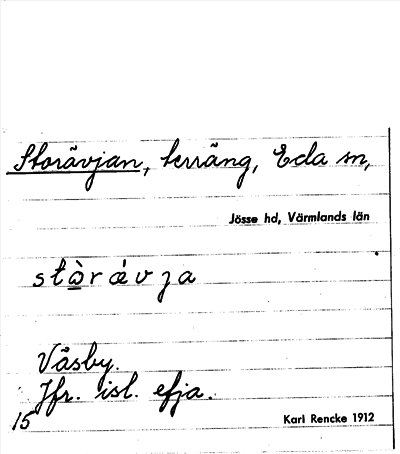 Storävjan, terräng, Eda sn,
Jösse hd, Värmlands län
stòrǽvja
Våsby.
Jfr. isl. efja.
15
Karl Rencke 1912